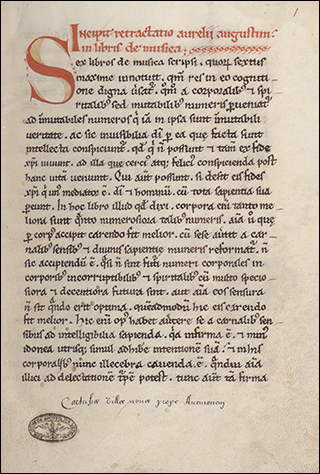 1
Incipit retractatio aurelii augustini
in libris de musica.
Sex libros de musica scripsi. quoꝝ sextus
maxime innotuit. qm̄ res in eo cognitio
ne digna uersat᷑. qm̄ a corporalib; & spi
ritalib; sed mutabilib; numeris pueniat᷑
ad inmutabiles numeros q̄ iā in ipsa sunt īmutabili
ueritate. ac sic inuisibilia dī p ea que facta sunt
intellecta conspiciunt᷑. qd̄ q̄ n̄ possunt & tam̄ ex fide
xp̄i uiuunt. ad illa que cerci⁹ atq; felici⁹ conspicienda post
hanc uitā ueniunt. Qui aut̄ possunt. si desit eis fides
xp̄i q̄ un⁹ mediator ē dī & hominū. cū tota sapientia sua
peunt. In hoc libro illud qd̄ dixi. corpora eni tanto me
liora sunt
corp⁹ accipit carendo fit melior. cū sese auertit a car
nalib; sensib; & diuinis sapientie numeris reformat᷑. n̄
sic accipiendū ē. q̄si n̄ sint futuri numeri corporales in
corporib; incorruptibilib; & spiritalib; cū multo specio
siora & decentiora futura sint. aut aīa eos sensura
n̄ sit q̄ndo erit optima. quēadmodū hic eis carendo
fit melior. hic enī op⁹ habet auertere se a carnalib; sen
sibus ad intelligibilia capienda. q̄a infirma ē. & min⁹
idonea utrisq; simul adhibere intentionē suā. & in his
corporalib; nunc illecebra cauenda ē. q̄ndiu aīa
illici ad delectationē potest. tunc aut̄ tā firma
Cartusiae Villae nouae prope Auenionem